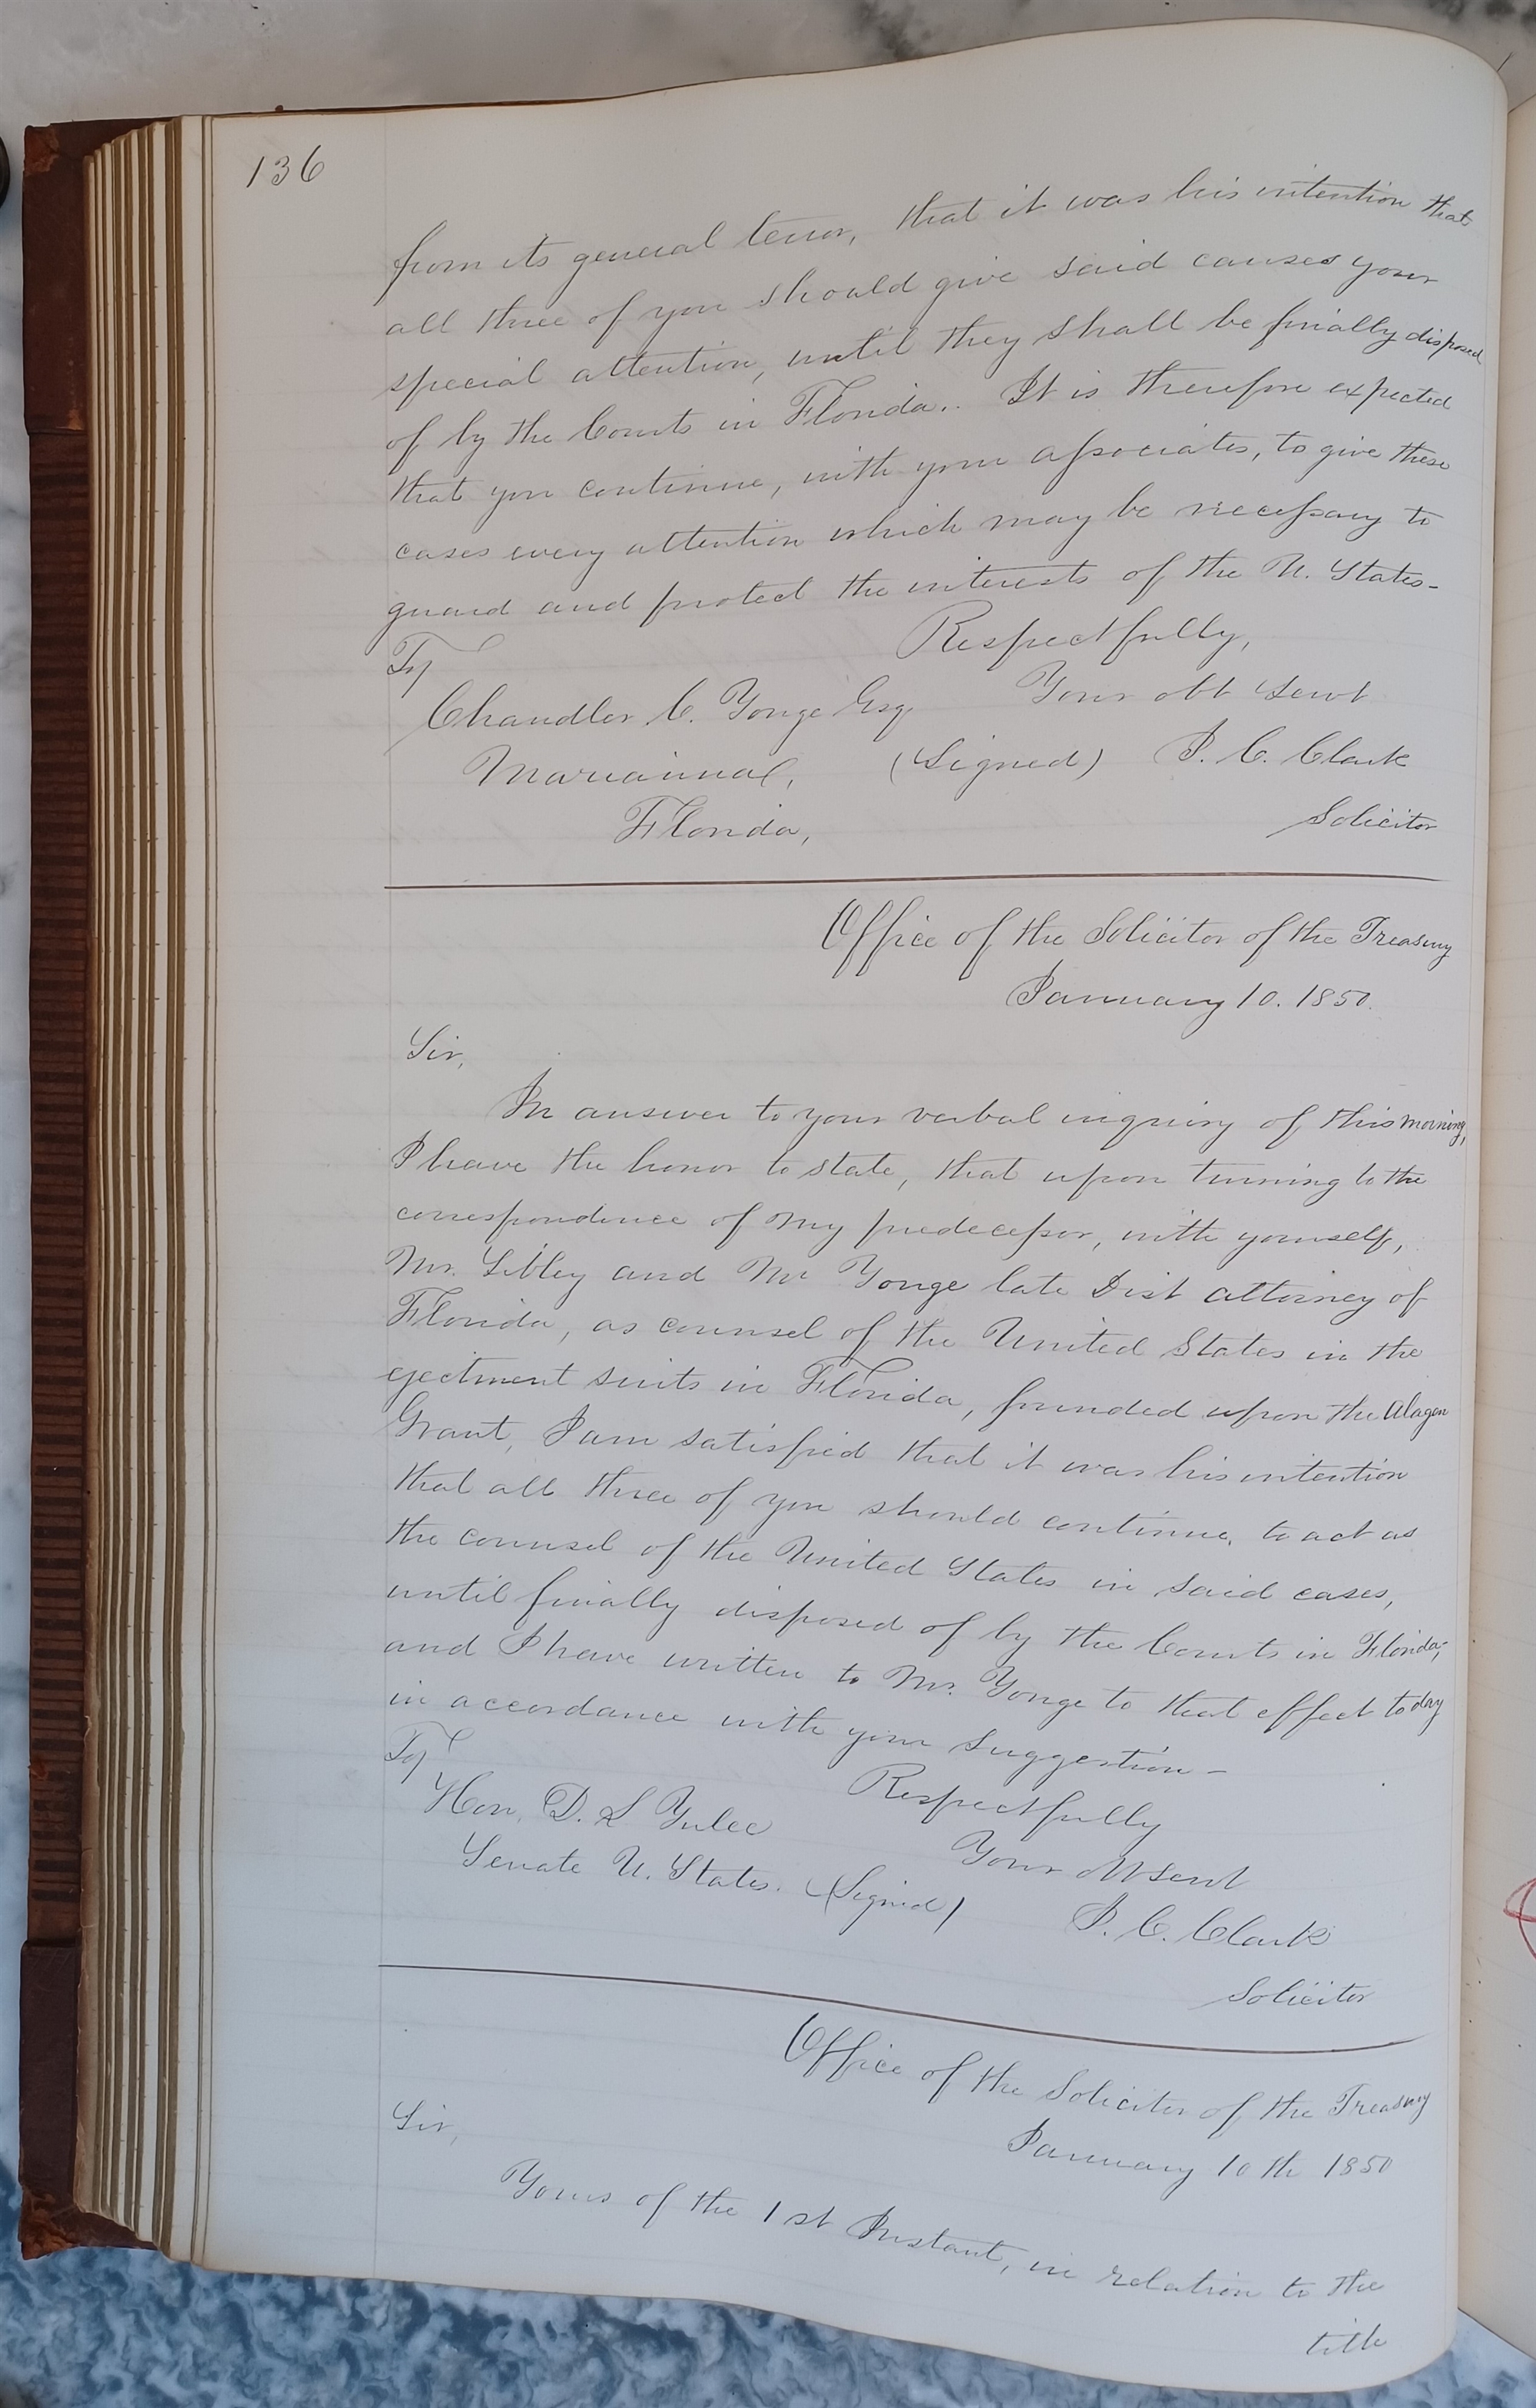 136
from its general tenor, that it was his intention that
all three of you should give said causes your
special attention, until they shall be finally disposed
of by the Courts in Florida.. It is therefore expected
that you continue, with your associates, to give these
cases every attention which may be necessary to
guard and protect the interests of the U. States-
Respectfully,
To
Your obt servt
Chandler C. Yonge Esq
(Signed) J. C. Clark
Marianna,
Solicitor
Florida,
Office of the Solicitor of the Treasury
January 10. 1850.
Sir,
In answer to your verbal inquiry of this morning,
I have the honor to state, that upon turning to the
correspondence of my predecessor, with yourself,
Mr. Sibley and Mr Yonge late Dist attorney of
Florida, as counsel of the United States in the
ejectment suits in Florida, founded upon the Alagon
Grant, I am satisfied that it was his intention
that all three of you should continue, to act as
the counsel of the United States in said cases,
until finally disposed of by the Courts in Florida;
and I have written to Mr. Yonge to that effect today
in accordance with your suggestion-
To
Respectfully
Hon. D. L Yulee
Your obt servt
Senate U. States. (Signed)
J. C. Clark
Solicitor
Office of the Solicitor of the Treasury
January 10th 1850
Sir,
Yours of the 1st Instant, in relation to the
title